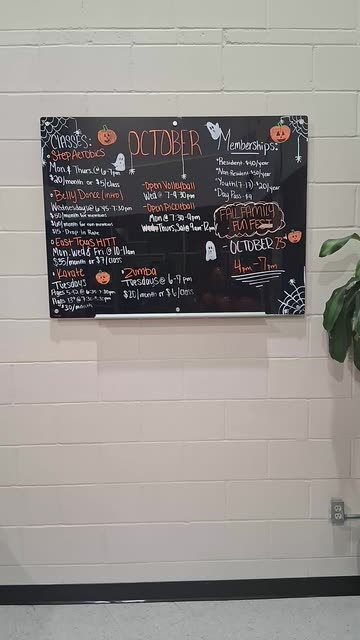 OCTOBER
CLASSES:
• Step Aerobics
Mon & Thurs. @ 6-7pm
$20/month or $5/class
• Belly Dance (intro)
Wednesdays @ 6:45-7:30pm
$50/month for members
for non members
$15- Drop In Rate
• East Texas HIIT
Mon, Wed & Fri @ 10-11am
$35/month or $7/class
• Karate
Tuesdays
Ages
Ages
$30/month
• Zumba
Tuesdays @ 6-7 pm
$20/month or $6/class
• Open Volleyball
Wed @ 7-9:30 pm
• Open Pickleball
Mon @ 7:30-9pm
Memberships:
• Resident $40/year
• Non-Resident $50/year
• Youth (7-17) $20/year
• Day Pass $4
FALL FAMILY
FUN FEST
- OCTOBER 25
4pm-7pm